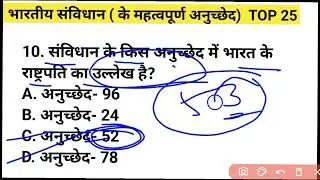 भारतीय संविधान ( के महत्वपूर्ण अनुच्छेद) TOP 25
10. संविधान के किस अनुच्छेद में भारत के
राष्ट्रपति का उल्लेख है?
A. अनुच्छेद- 96
B. अनुच्छेद- 24
C. अनुच्छेद- 52
D. अनुच्छेद- 78